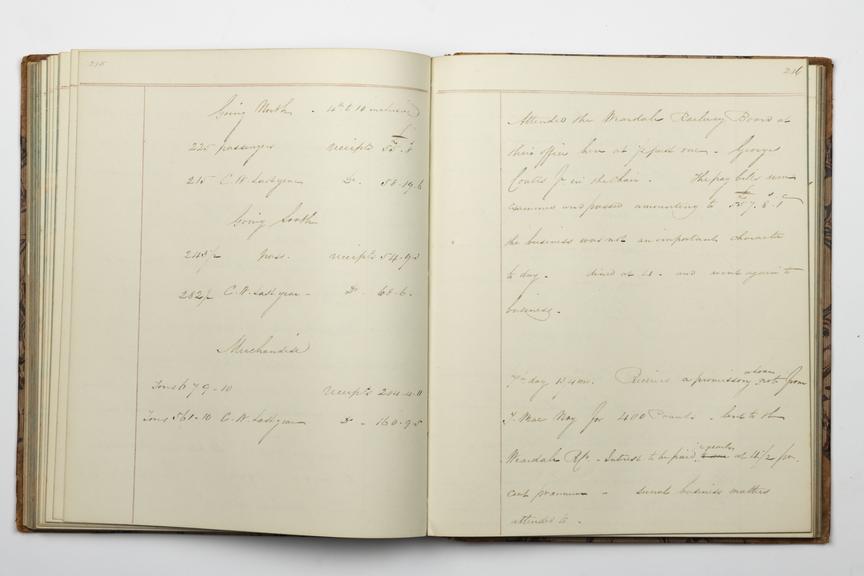 215
Going North - 4th to 10 inclusive
£
225 passengers receipts 52.8
215 C.W. Last year Do. 58-19.6
Going South
245½ Pass. receipts 54.9.3
282½ C.W. Last year - Do. 68.6.
Merchandise
Tons 679-10 receipts 204.4.11
Tons 561-10 C.W. Last year Do - 160.9.5
216
Attended the Weardale Railway Board at
their office here at ½ past one. George
Coates Jr in the Chair. The pay bills were
examined and passed amounting to £ 527.8.1
the business was not an important character
to day. dined at and went again to
business.
7th day 13 4mo. Received a promissory note from
J. Mac Nay for 400 Pounds - lent to the
Weardale Ry - Interest to be paid at 4½ per
cent per annum - several business matters
attended to.